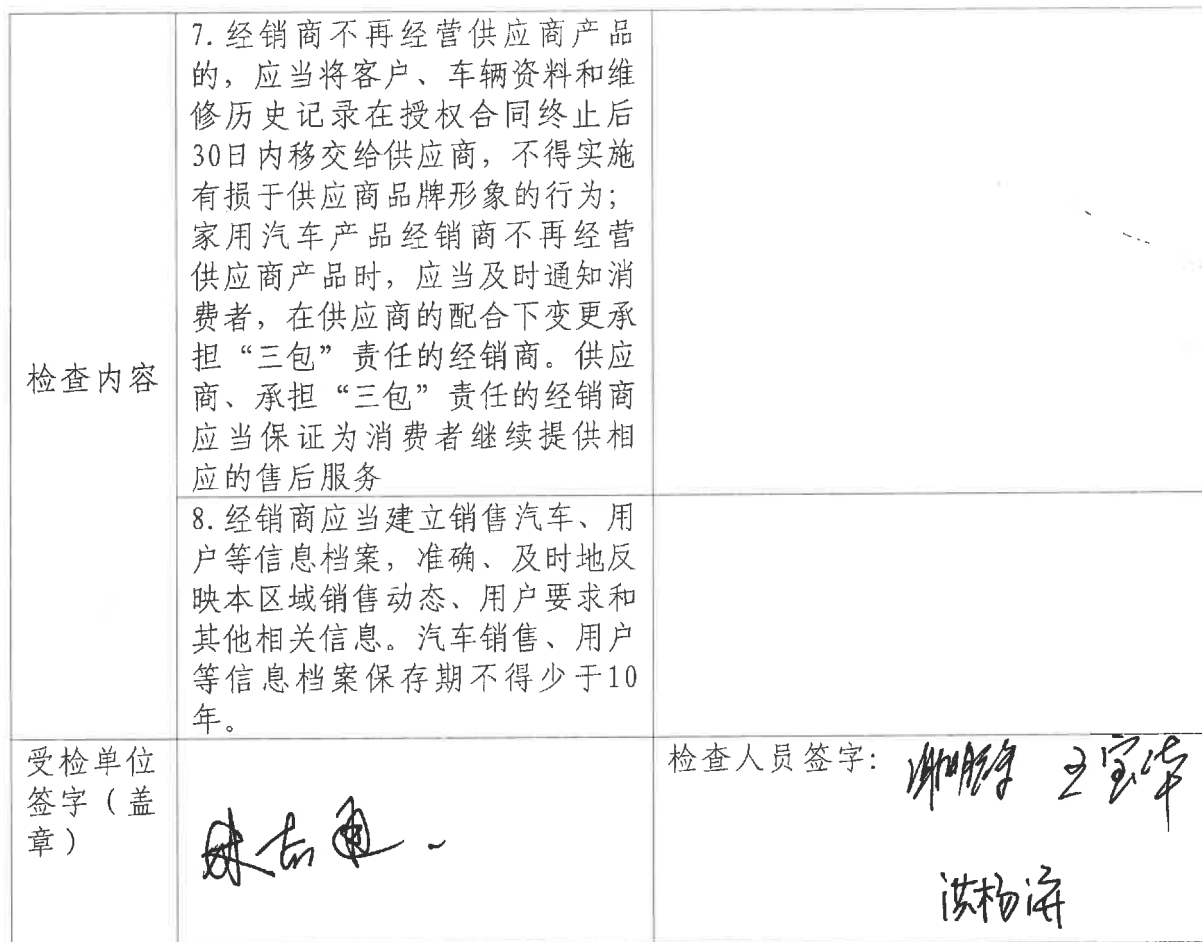 7.经销商不再经营供应商产品
的，应当将客户、车辆资料和维
修历史记录在授权合同终止后
30日内移交给供应商，不得实施
有损于供应商品牌形象的行为；
家用汽车产品经销商不再经营
供应商产品时，应当及时通知消
费者，在供应商的配合下变更承
担“三包”责任的经销商。供应
商、承担“三包”责任的经销商
应当保证为消费者继续提供相
应的售后服务
检查内容
8.经销商应当建立销售汽车、用
户等信息档案，准确、及时地反
映本区域销售动态、用户要求和
其他相关信息。汽车销售、用户
等信息档案保存期不得少于10
年。
受检单位
签字（盖
章）
检查人员签字：
王宝华